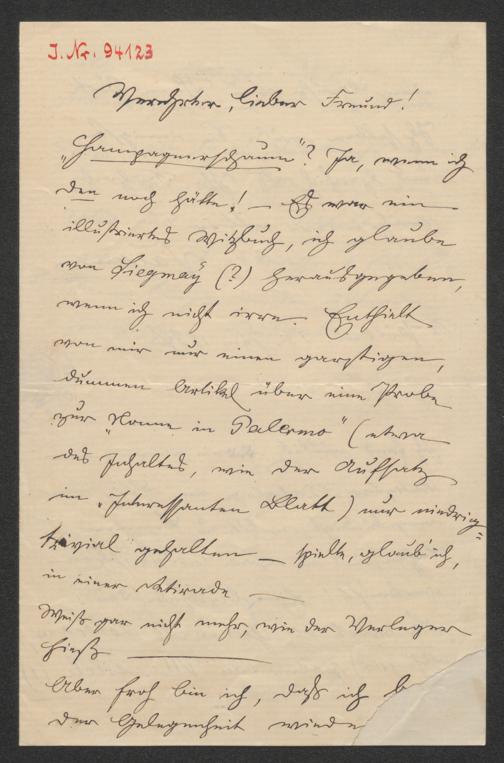 J. Nr. 94123
Verehrter, lieber Freund!
„Champagnerschaum"? Ja, wenn ich
den noch hätte! — Es war ein
illustriertes Witzbuch, ich glaube
von Siegmay (?) herausgegeben,
wenn ich nicht irre. Enthielt
von mir nur einen garstigen,
dummen Artikel über eine Probe
zur „Nonne in Palermo" (etwa
des Inhaltes, wie der Aufsatz
im „Interessanten Blatt") nur niedrig-
trivial gehalten — spielte, glaub' ich,
in einer Retirade —
Weiß gar nicht mehr, wie der Verleger
hieß —
Aber froh bin ich, daß ich b
der Gelegenheit wiede